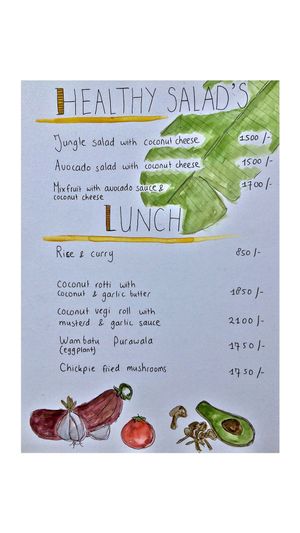 HEALTHY SALAD'S
Jungle salad with coconut cheese 1500/-
Avocado salad with coconut cheese 1500/-
Mixfruit with avocado sauce & 1700/-
coconut cheese
LUNCH
Rice & curry 850/-
Coconut rotti with
coconut & garlic butter 1850/-
Coconut vegi roll with
musterd & garlic sauce 2100/-
Wambatu Purawala 1750/-
(eggplant)
Chickpie fried mushrooms 1750/-